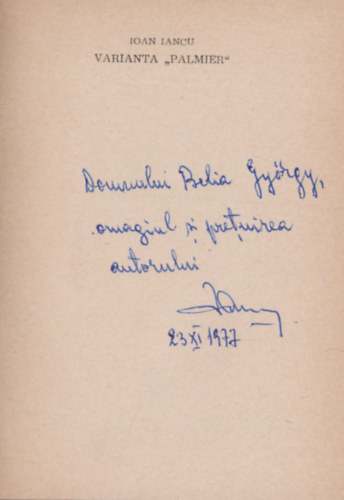 IOAN IANCU
VARIANTA „PALMIER“
Domnului Belia György,
omagiul și prețuirea
autorului
23 XI 1977